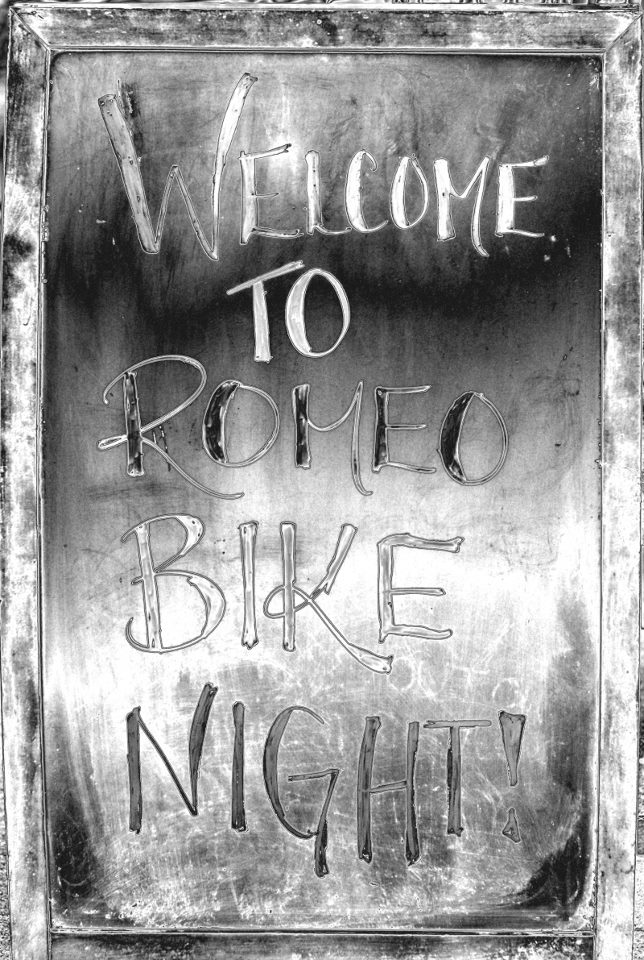 WELCOME
TO
ROMEO
BIKE
NIGHT!